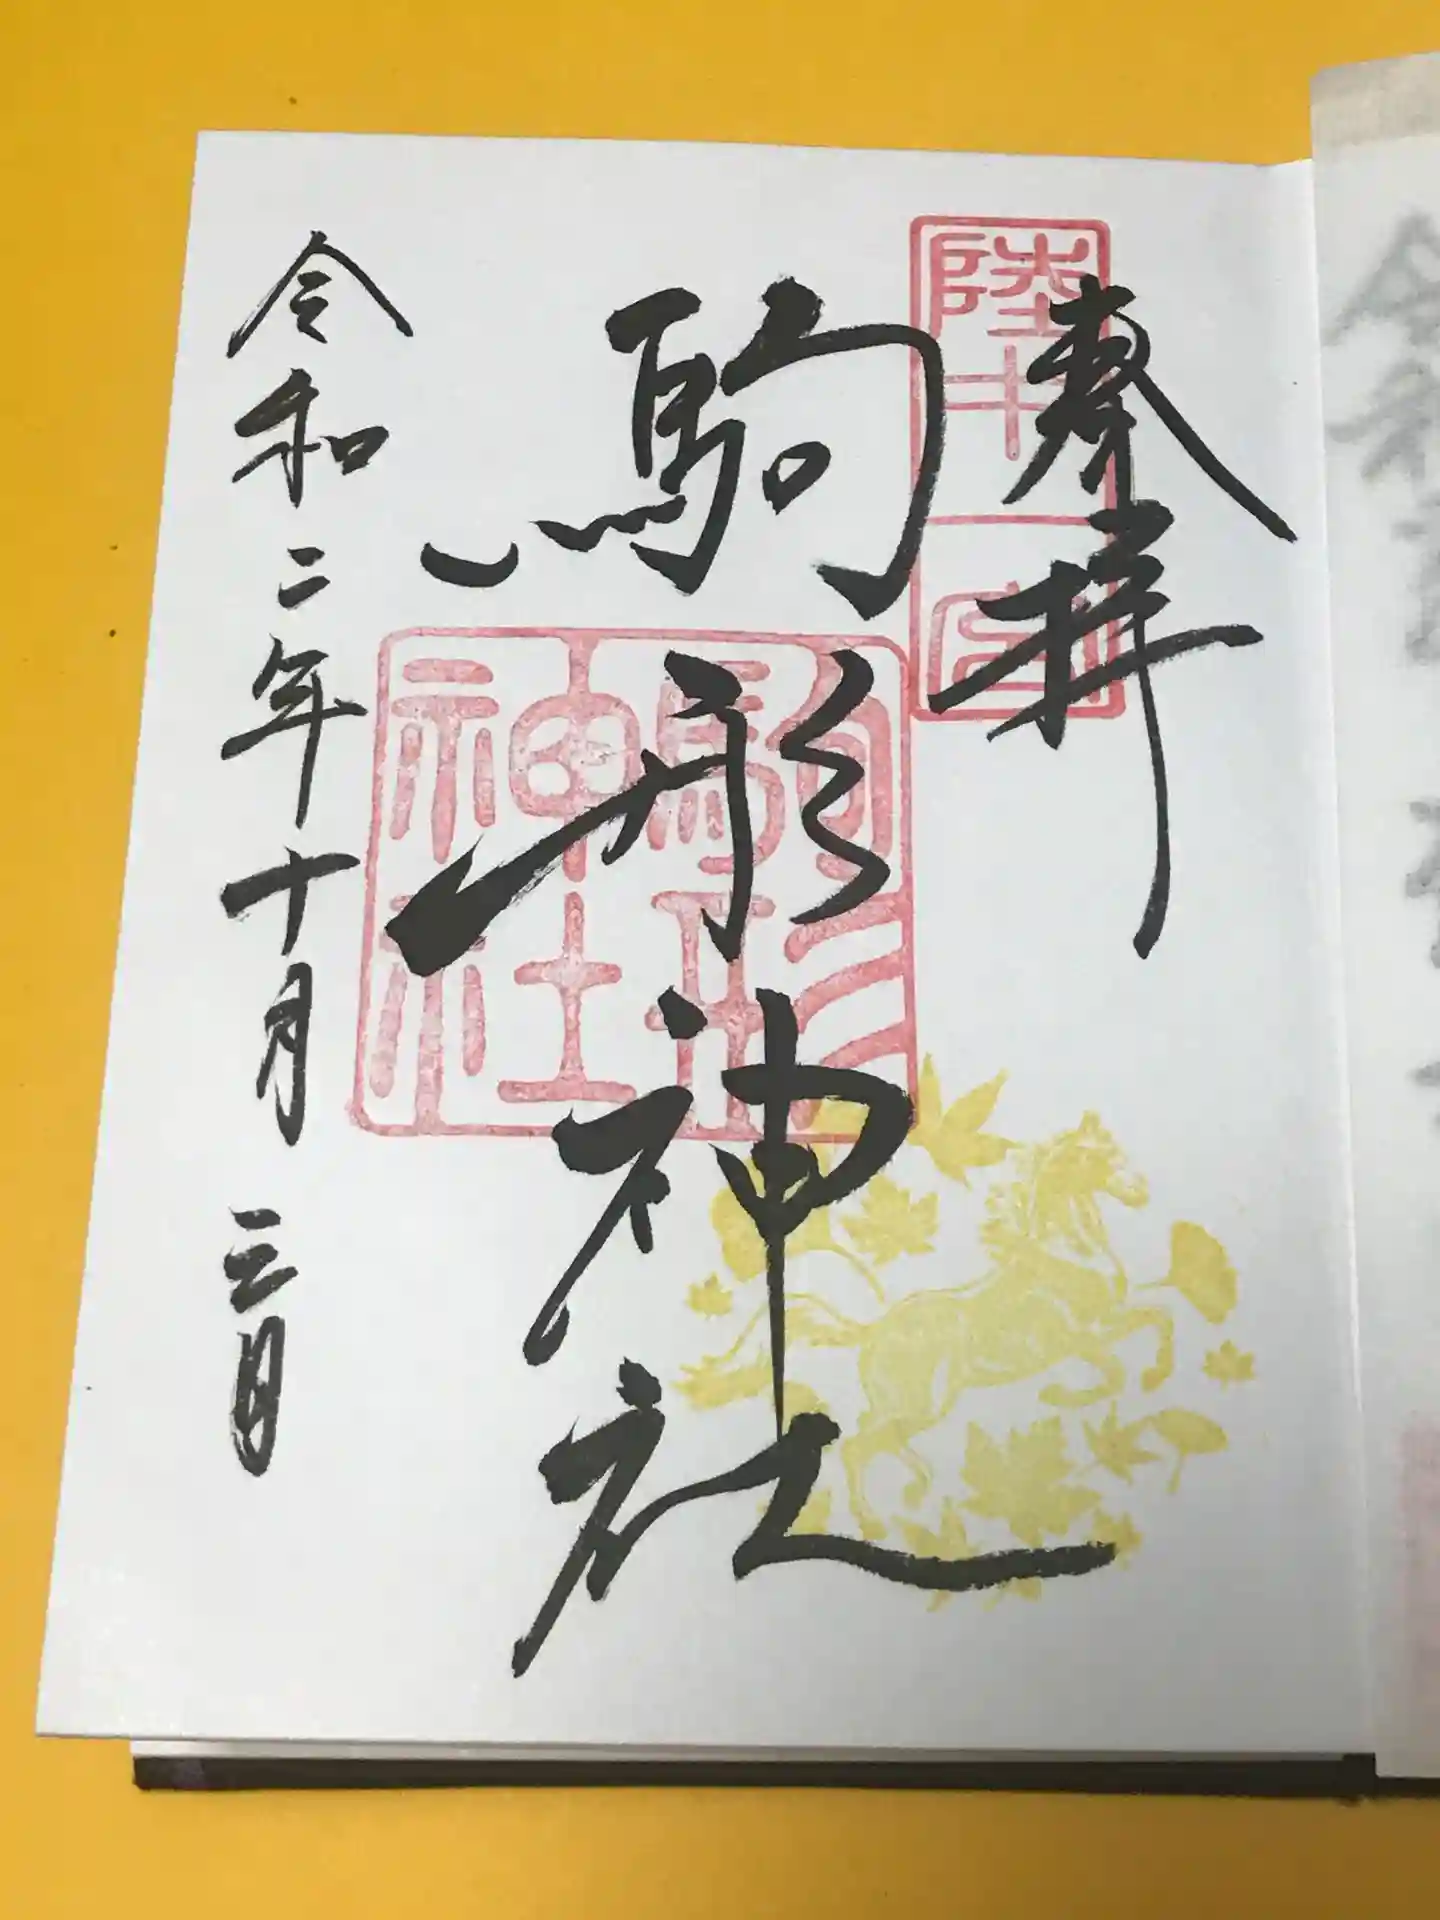 奉拝
陸中一宮
駒形神社
駒形
神社
令和二年十月三日